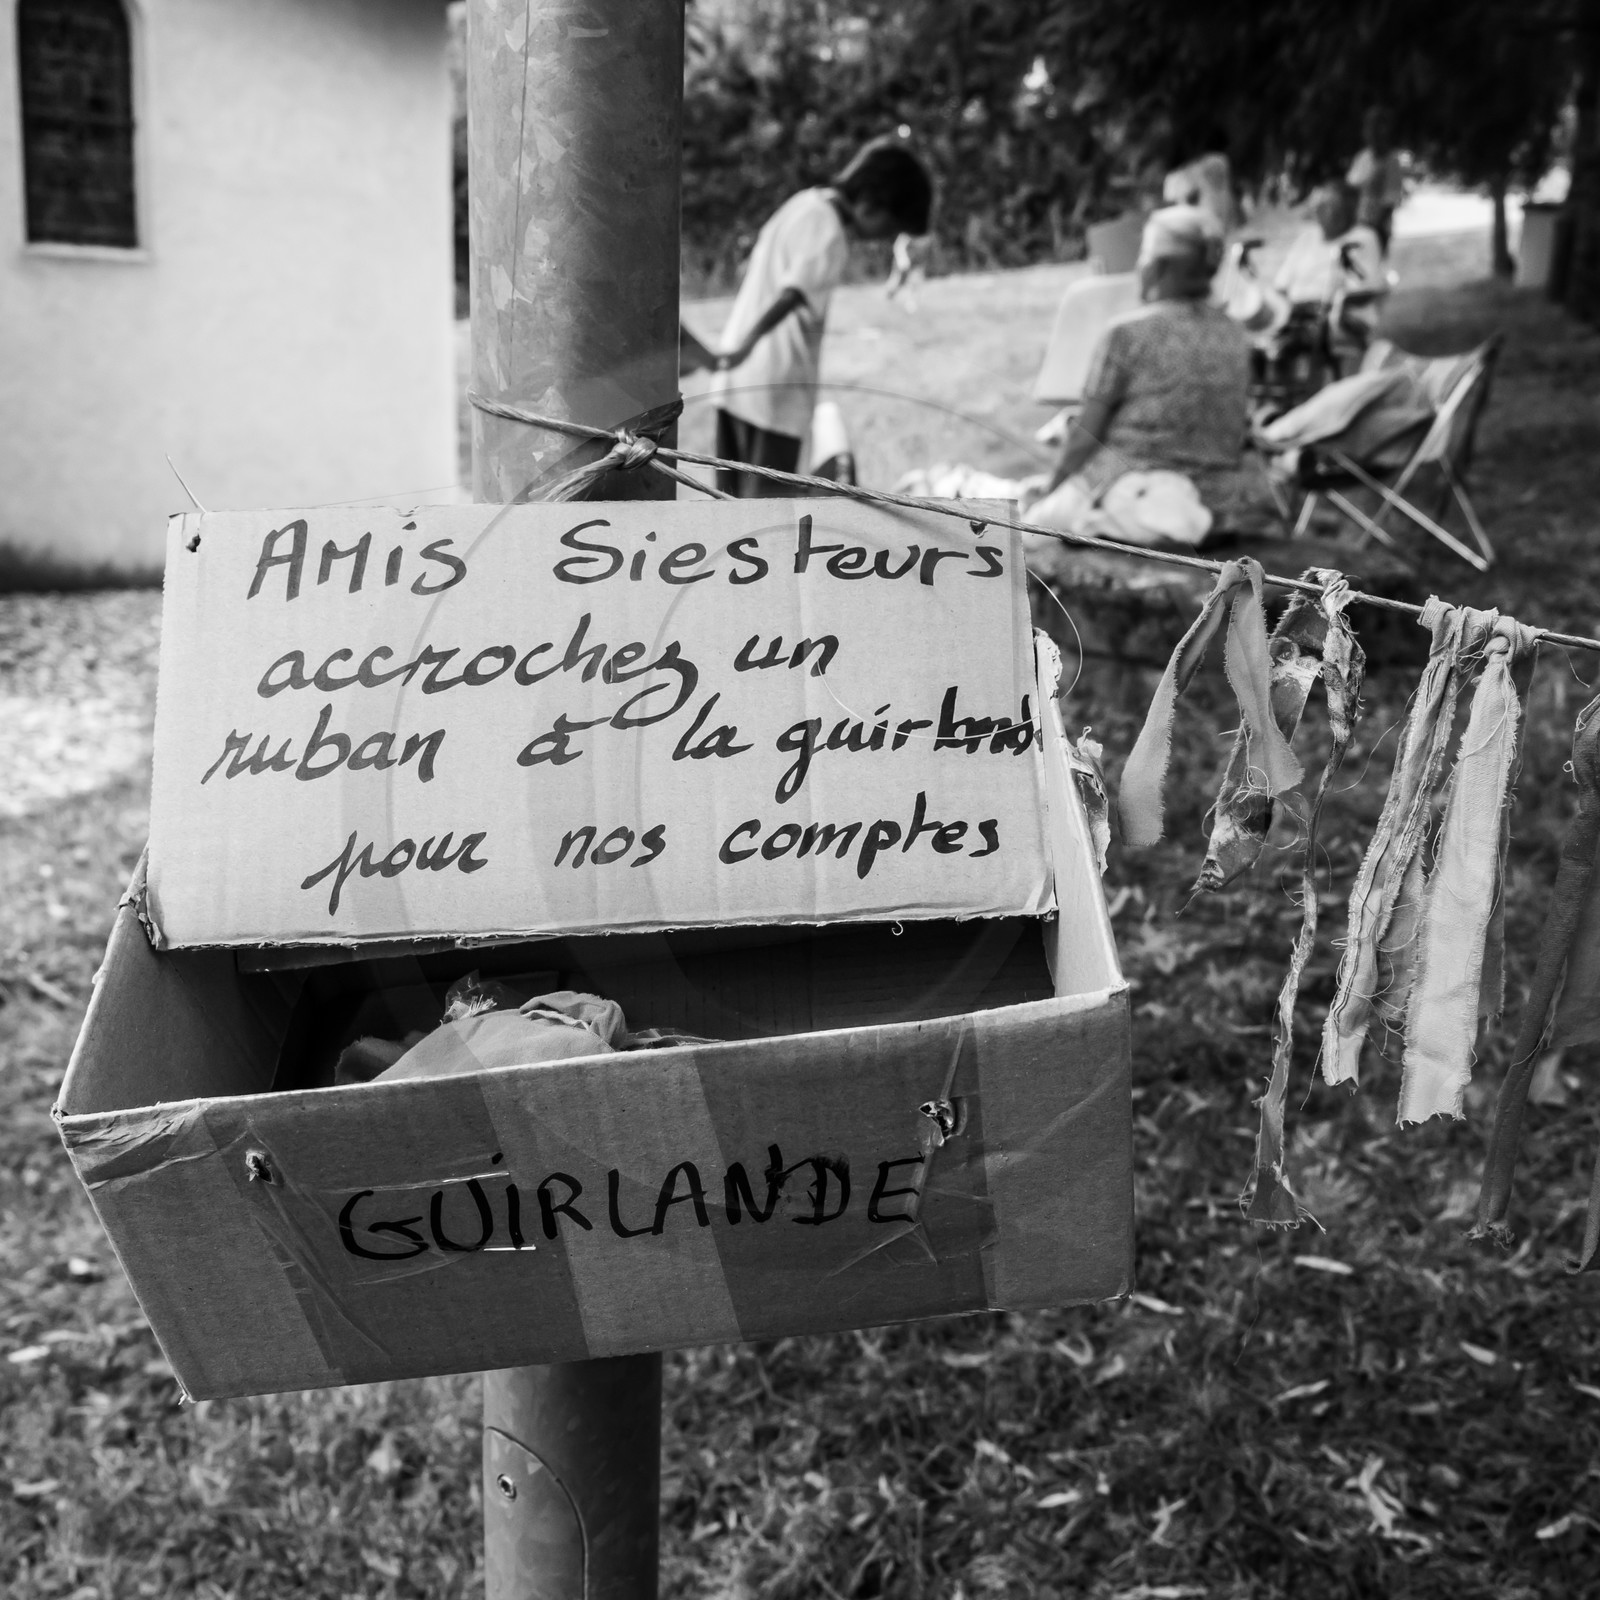 AMis Siesteurs
accrochez un
ruban à la guirlande
pour nos comptes
GUiRLANDE